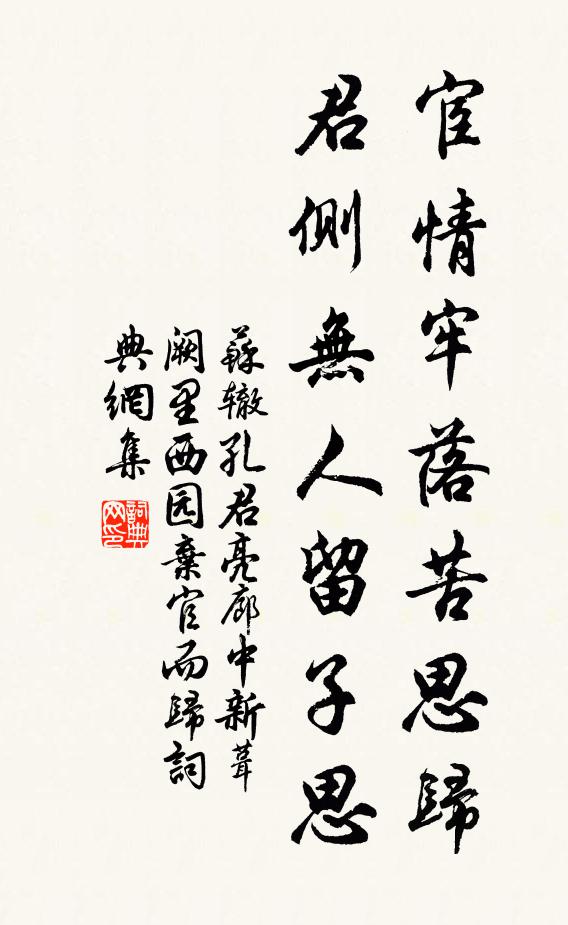 宦情牢落苦思歸
君側無人留子思
蘇辙孔君亮廊中新葺
阙里西园棄官而歸詞
典網集
詞典
网印